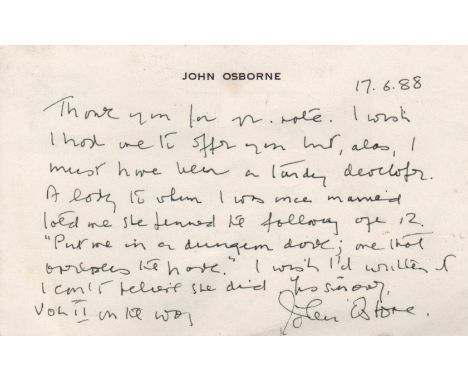 JOHN OSBORNE
17.6.88
Thank you for yr. note. I wish
I had one to offer you but, alas, I
must have been a tardy developer.
A lady to whom I was once married
told me she penned the following age 12
"Put me in a dungeon dark; one that
overlooks the park." I wish I'd written it
I can't believe she did Yrs sincerely,
Vol II on the way John Osborne.